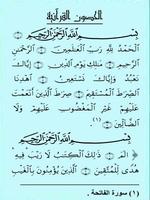 الحصون القرآنية
بِسْمِ اللَّهِ الرَّحْمَٰنِ الرَّحِيمِ
الْحَمْدُ لِلَّهِ رَبِّ الْعَٰلَمِينَ الرَّحْمَٰنِ
الرَّحِيمِ مَٰلِكِ يَوْمِ الدِّينِ إِيَّاكَ
نَعْبُدُ وَإِيَّاكَ نَسْتَعِينُ اهْدِنَا
الصِّرَٰطَ الْمُسْتَقِيمَ صِرَٰطَ الَّذِينَ أَنْعَمْتَ
عَلَيْهِمْ غَيْرِ الْمَغْضُوبِ عَلَيْهِمْ وَلَا
الضَّالِّينَ (١)
بِسْمِ اللَّهِ الرَّحْمَٰنِ الرَّحِيمِ
الم ذَٰلِكَ الْكِتَٰبُ لَا رَيْبَ فِيهِ
هُدًى لِّلْمُتَّقِينَ الَّذِينَ يُؤْمِنُونَ بِالْغَيْبِ
(١) سورة الفاتحة .